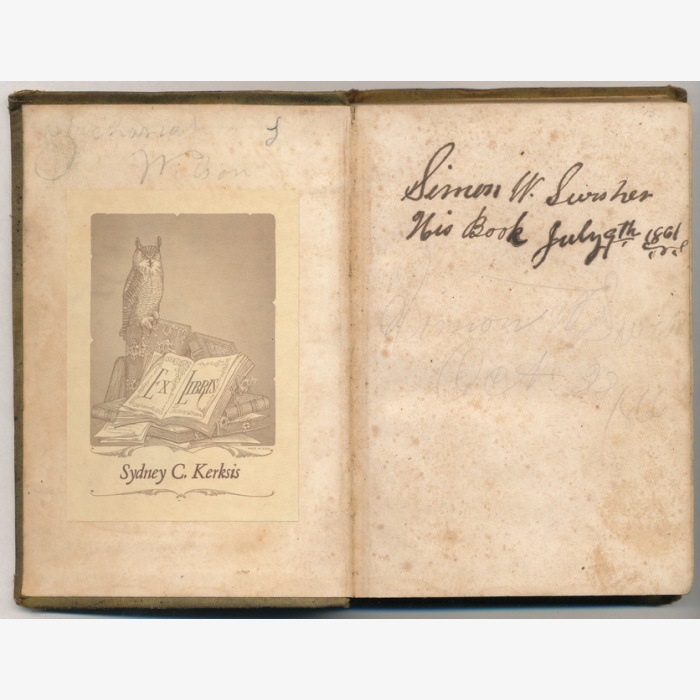 Wilson
EX LIBRIS
Sydney C. Kerksis
Simon W. Swisher
His Book July 9th 1861
Simon W
Oct 23